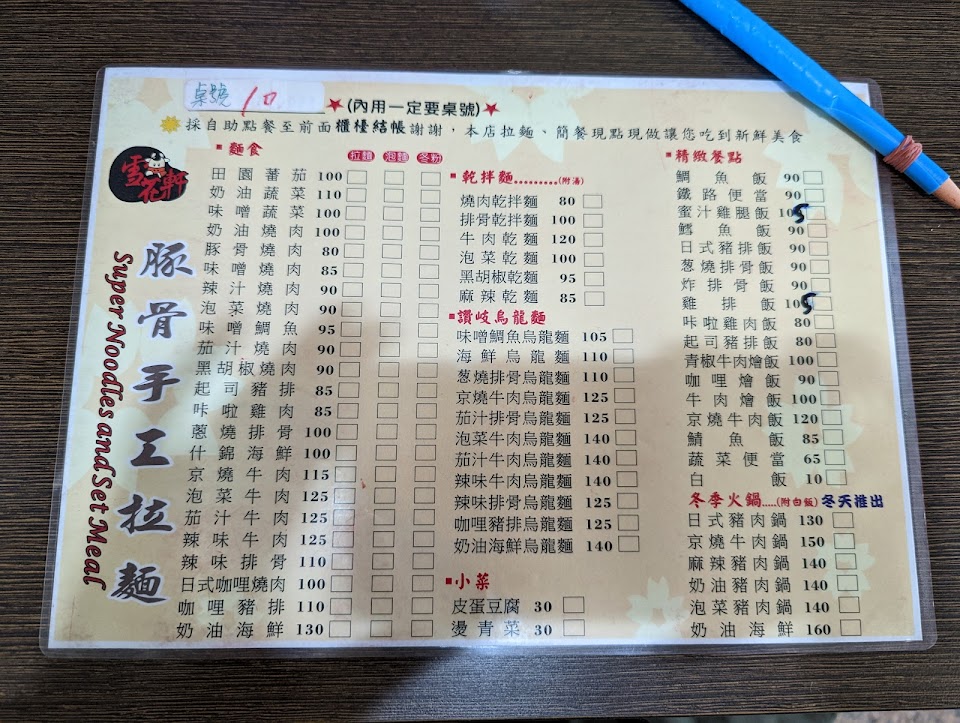 桌號 10
★(內用一定要桌號)★
採自助點餐至前面櫃檯結帳謝謝，本店拉麵、簡餐現點現做讓您吃到新鮮美食
雪花軒
豚骨手工拉麵
Super Noodles and Set Meal
麵食 拉麵 泡麵 冬粉
田園蕃茄 100
奶油蔬菜 110
味噌蔬菜 100
奶油燒肉 100
豚骨燒肉 80
味噌燒肉 85
辣汁燒肉 90
泡菜燒肉 90
味噌鯛魚 95
茄汁燒肉 90
黑胡椒燒肉 90
起司豬排 85
咔啦雞肉 85
蔥燒排骨 100
什錦海鮮 100
京燒牛肉 115
泡菜牛肉 125
茄汁牛肉 125
辣味牛肉 125
辣味排骨 110
日式咖哩燒肉 100
咖哩豬排 110
奶油海鮮 130
乾拌麵.........(附湯)
燒肉乾拌麵 80
排骨乾拌麵 100
牛肉乾麵 120
泡菜乾麵 100
黑胡椒乾麵 95
麻辣乾麵 85
讚岐烏龍麵
味噌鯛魚烏龍麵 105
海鮮烏龍麵 110
葱燒排骨烏龍麵 110
京燒牛肉烏龍麵 125
茄汁排骨烏龍麵 125
泡菜牛肉烏龍麵 140
茄汁牛肉烏龍麵 140
辣味牛肉烏龍麵 140
辣味排骨烏龍麵 125
咖哩豬排烏龍麵 125
奶油海鮮烏龍麵 140
小菜
皮蛋豆腐 30
燙青菜 30
精緻餐點
鯛魚飯 90
鐵路便當 90
蜜汁雞腿飯 105
鱈魚飯 90
日式豬排飯 90
葱燒排骨飯 90
炸排骨飯 90
雞排飯 105
咔啦雞肉飯 80
起司豬排飯 80
青椒牛肉燴飯 100
咖哩燴飯 90
牛肉燴飯 100
京燒牛肉飯 120
鯖魚飯 85
蔬菜便當 65
白飯 10
冬季火鍋.....(附白飯) 冬天推出
日式豬肉鍋 130
京燒牛肉鍋 150
麻辣豬肉鍋 140
奶油豬肉鍋 140
泡菜豬肉鍋 140
奶油海鮮 160